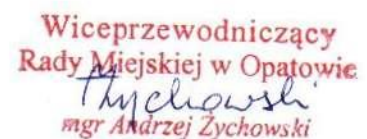 Wiceprzewodniczący
Rady Miejskiej w Opatowie
Żychowski
mgr Andrzej Żychowski